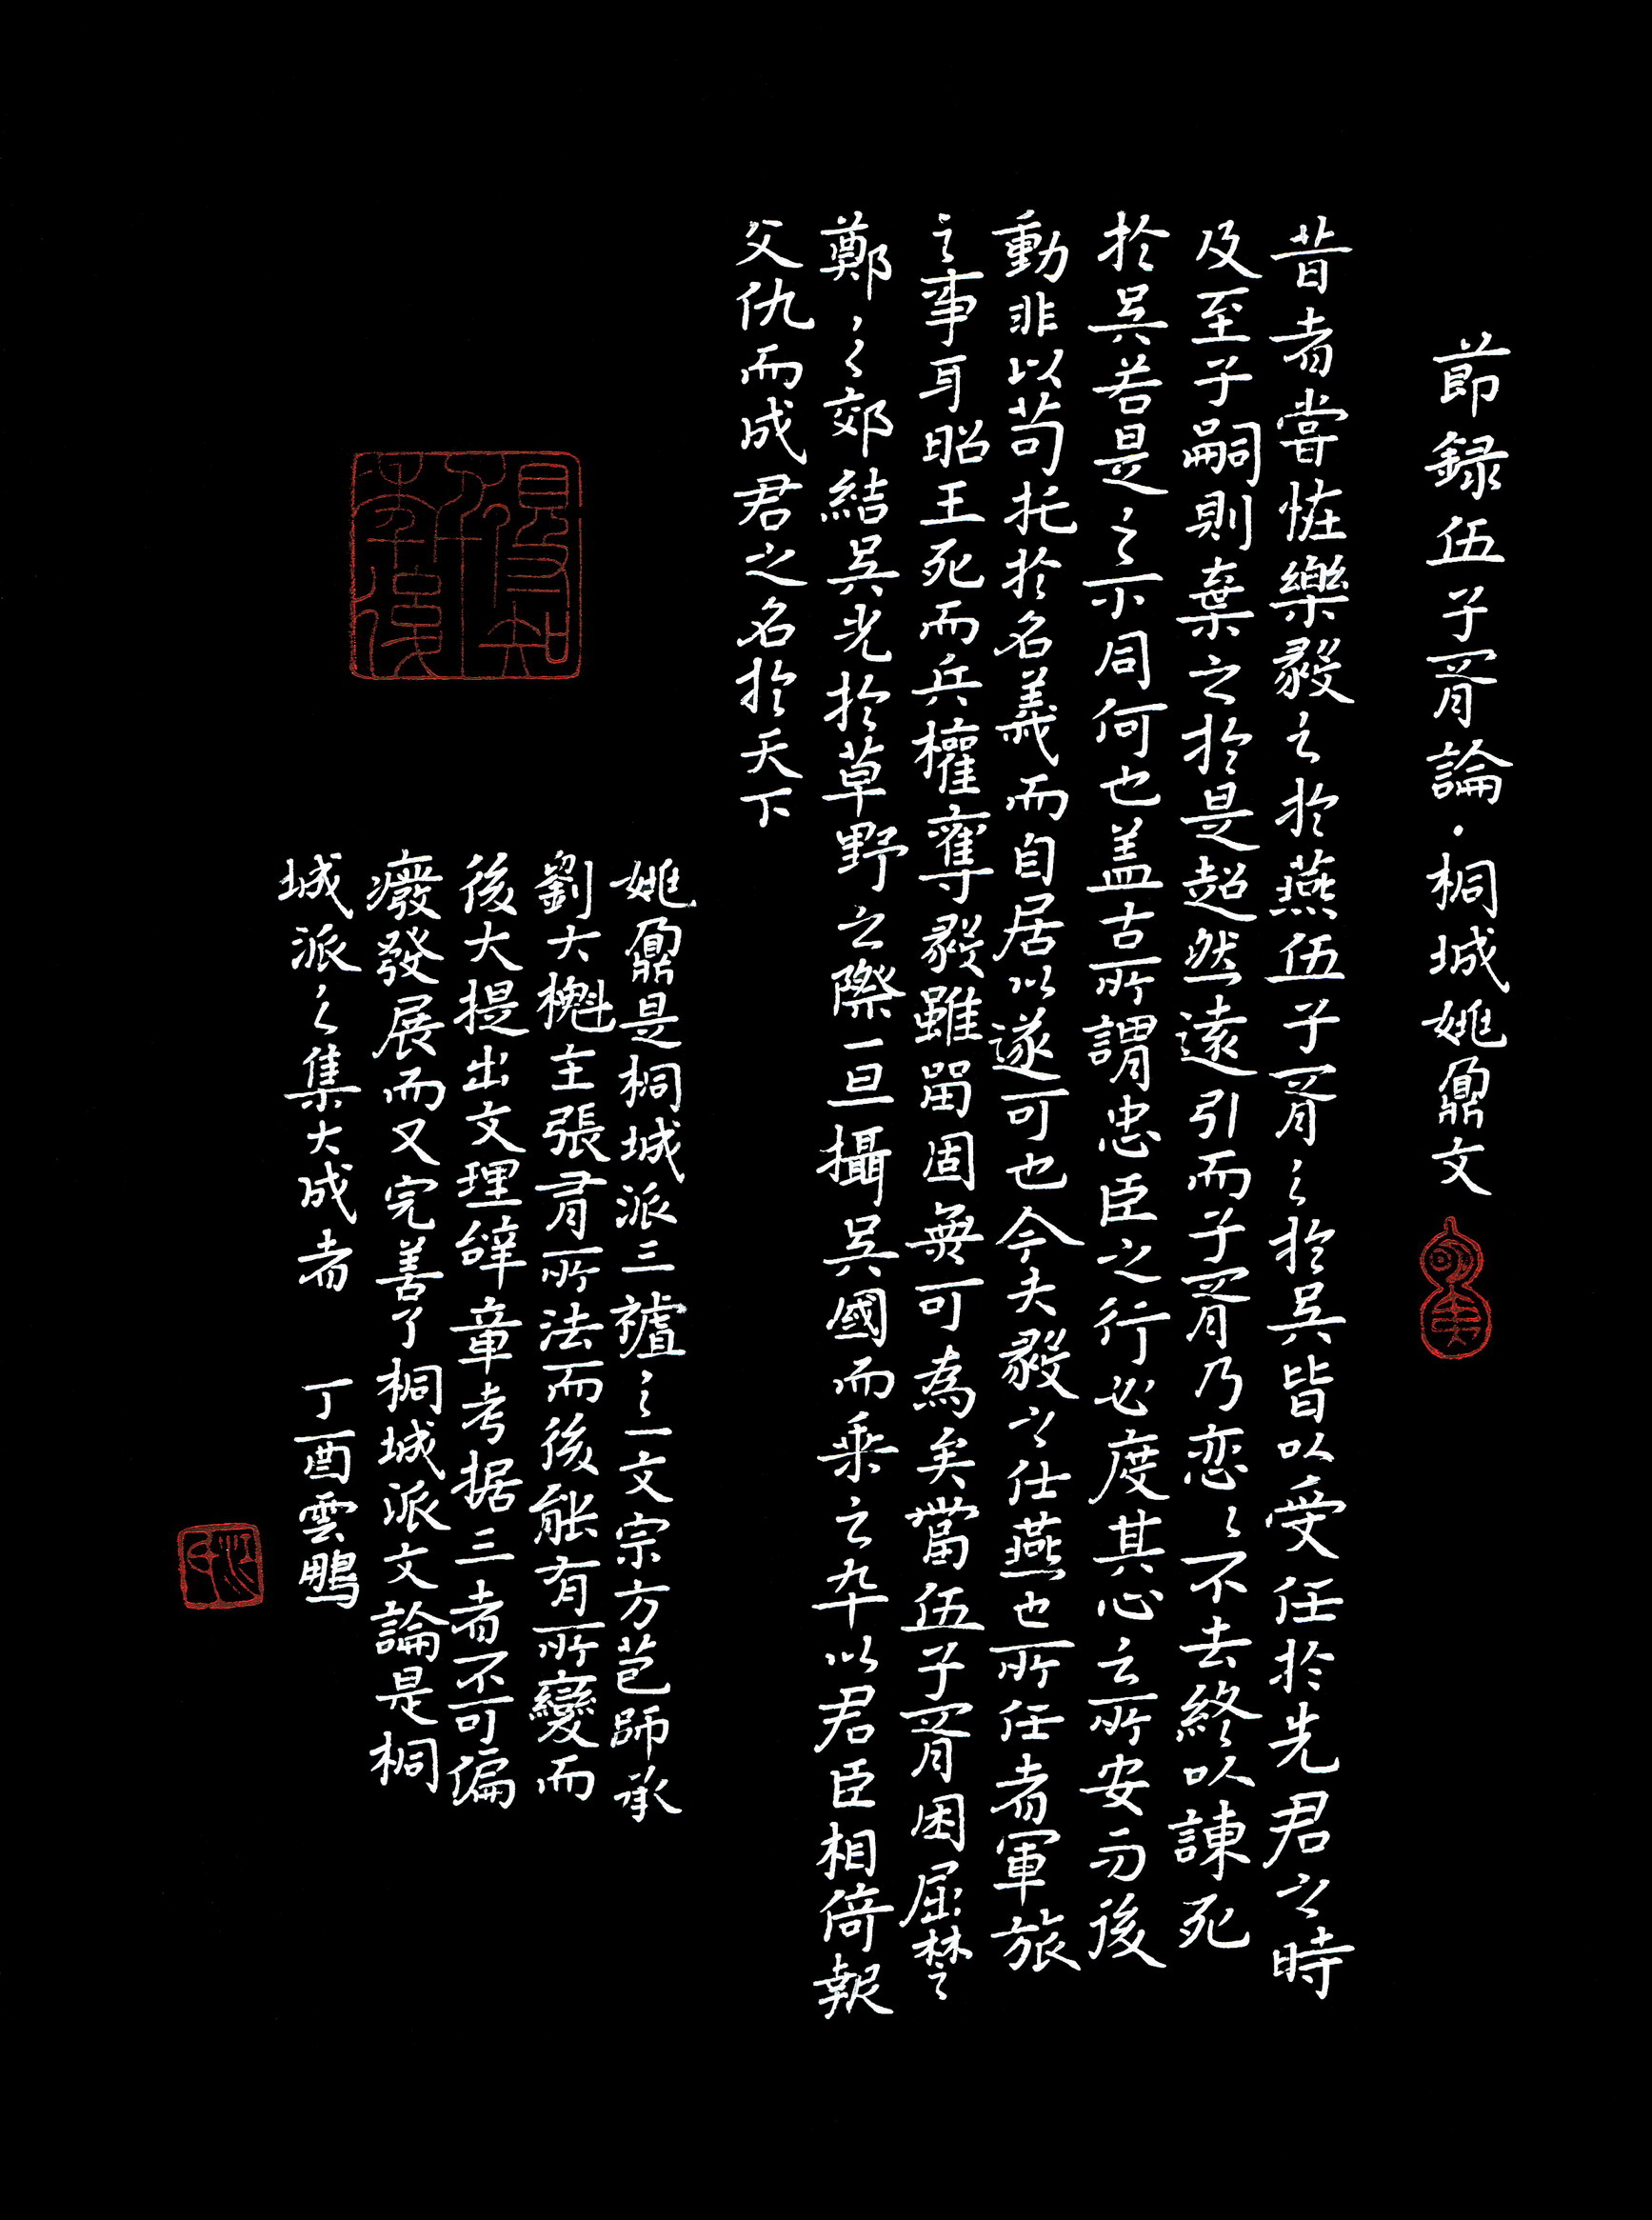 節録伍子胥論·桐城姚鼐文
昔者嘗怪樂毅之於燕伍子胥之於吳皆以受任於先君之時
及至子嗣則棄之於是超然遠引而子胥乃恋〻不去終以諫死
於吳若是之不同何也盖古所謂忠臣之行必度其心之所安而後
動非以苟托於名義而自居以遂可也今夫毅之仕燕也所任者軍旅
之事耳昭王死而兵權奪毅雖留固無可為矣當伍子胥困屈楚之
鄭〻之郊結吳光於草野之際一旦攝吳國而乘之卒以君臣相倚報
父仇而成君之名於天下
姚鼐是桐城派三祖之一文宗方苞師承
劉大櫆主張有所法而後能有所變而
後大提出文理辭章考据三者不可偏
癈發展而又完善了桐城派文論是桐
城派之集大成者 丁酉雲鵬